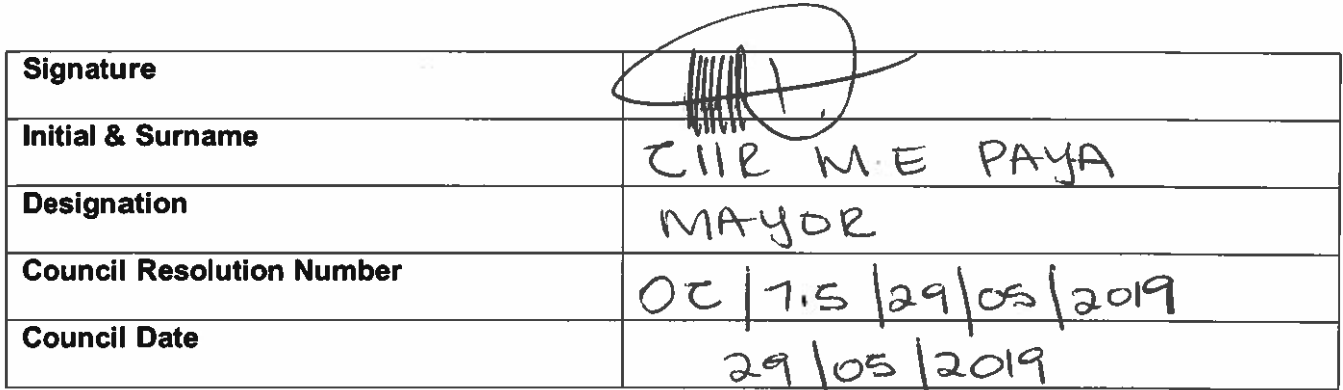 Signature
Initial & Surname CllR M.E PAYA
Designation MAYOR
Council Resolution Number OC/7.5/29/05/2019
Council Date 29/05/2019